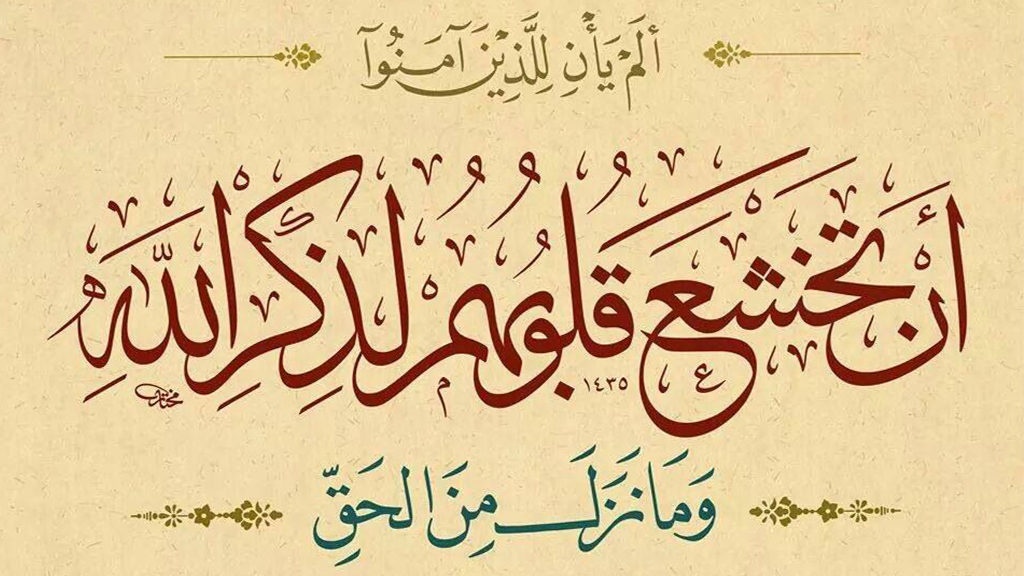 أَلَمْ يَأْنِ لِلَّذِينَ آمَنُوٓا
أَنْ تَخْشَعَ قُلُوبُهُمْ لِذِكْرِ اللَّهِ
١٤٣٥
مختار
وَمَا نَزَلَ مِنَ الْحَقِّ